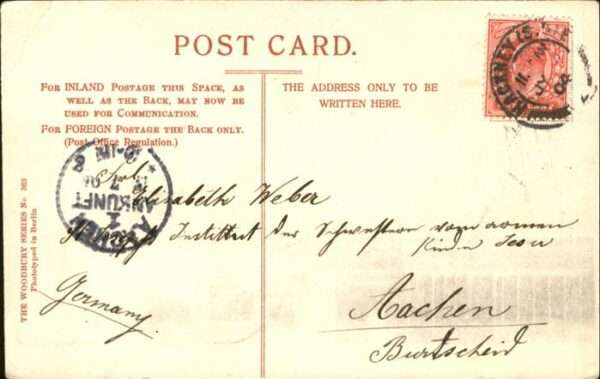 POST CARD.
FOR INLAND POSTAGE THIS SPACE, AS
WELL AS THE BACK, MAY NOW BE
USED FOR COMMUNICATION.
FOR FOREIGN POSTAGE THE BACK ONLY.
(Post Office Regulation.)
THE ADDRESS ONLY TO BE
WRITTEN HERE.
HACKNEY
ANKUNFT
THE WOODBURY SERIES No. 363
Phototyped in Berlin
Elisabeth Weber
Institut der Schwestern vom armen
Kinde Jesu
Germany.
Aachen
Burtscheid